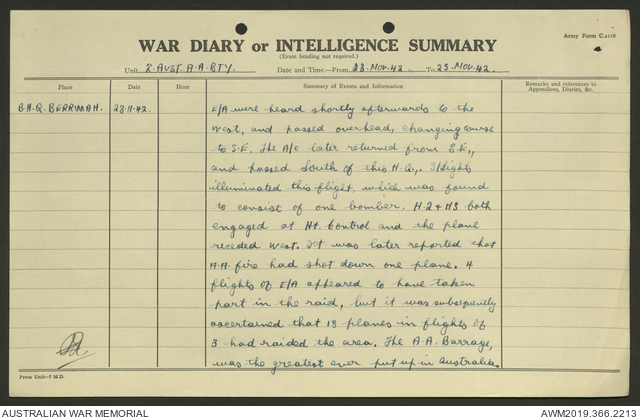 Army Form C.2118
WAR DIARY or INTELLIGENCE SUMMARY
(Erase heading not required.)
Unit 2. AUST A.A. BTY. Date and Time—From 23. NOV. 42. To 23. NOV. 42.
Place Date Hour Summary of Events and Information Remarks and references to Appendices, Diaries, &c.
B.H.Q. BERRIMAH. 23.11.42. E/A were heard shortly afterwards to the
West, and passed overhead, changing course
to S.E. The A/C later returned from S.E.,
and passed South of this H.Q.,. S/Lights
illuminated this flight, which was found
to consist of one bomber. H.2 & H3 both
engaged at Ht. Control and the plane
receded West. It was later reported that
A.A. fire had shot down one plane. 4
flights of E/A appeared to have taken
part in the raid, but it was subsequently
ascertained that 18 planes in flights of
3 had raided the area. The A.A. Barrage,
was the greatest ever put up in Australia.
Press Unit—7 M.D.
AUSTRALIAN WAR MEMORIAL AWM2019.366.2213